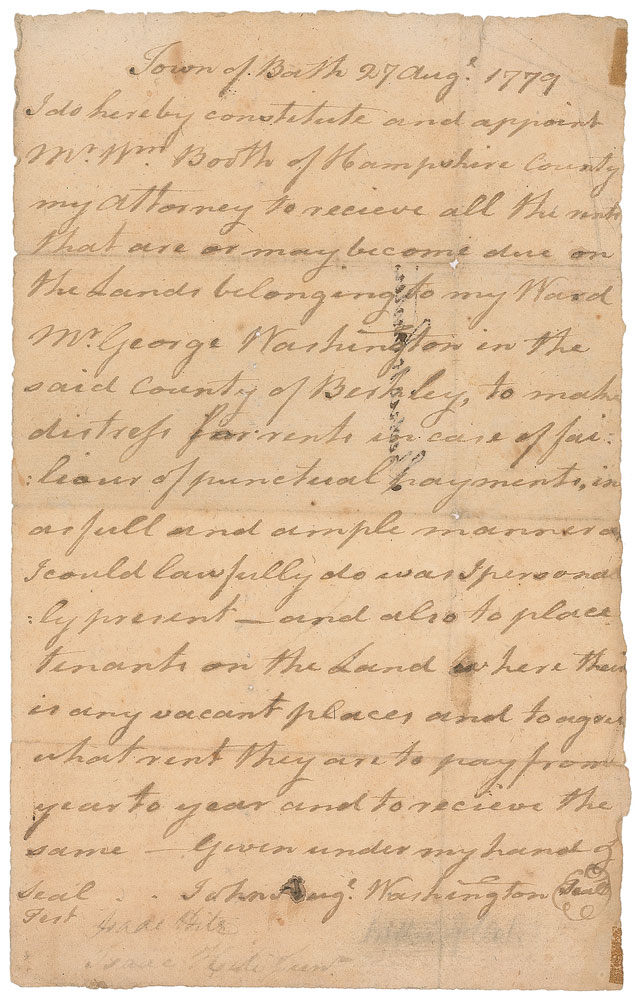 Town of Bath 27 Augt. 1779
I do hereby constitute and appoint
Mr. Wm. Booth of Hampshire County
my Attorney to recieve all the rents
that are or may become due on
the Lands belonging to my Ward
Mr. George Washington in the
said County of Berkley, to make
distress for rents in case of fai:
:liour of punctual payments, in
as full and ample manner as
I could lawfully do was I personal
:ly present — and also to place
tenants on the Land where their
is any vacant places and to agree
what rent they are to pay from
year to year and to recieve the
same — Given under my hand &
Seal . . John Augt. Washington Seal
Test Isaac Hite
Isaac Hite Junr